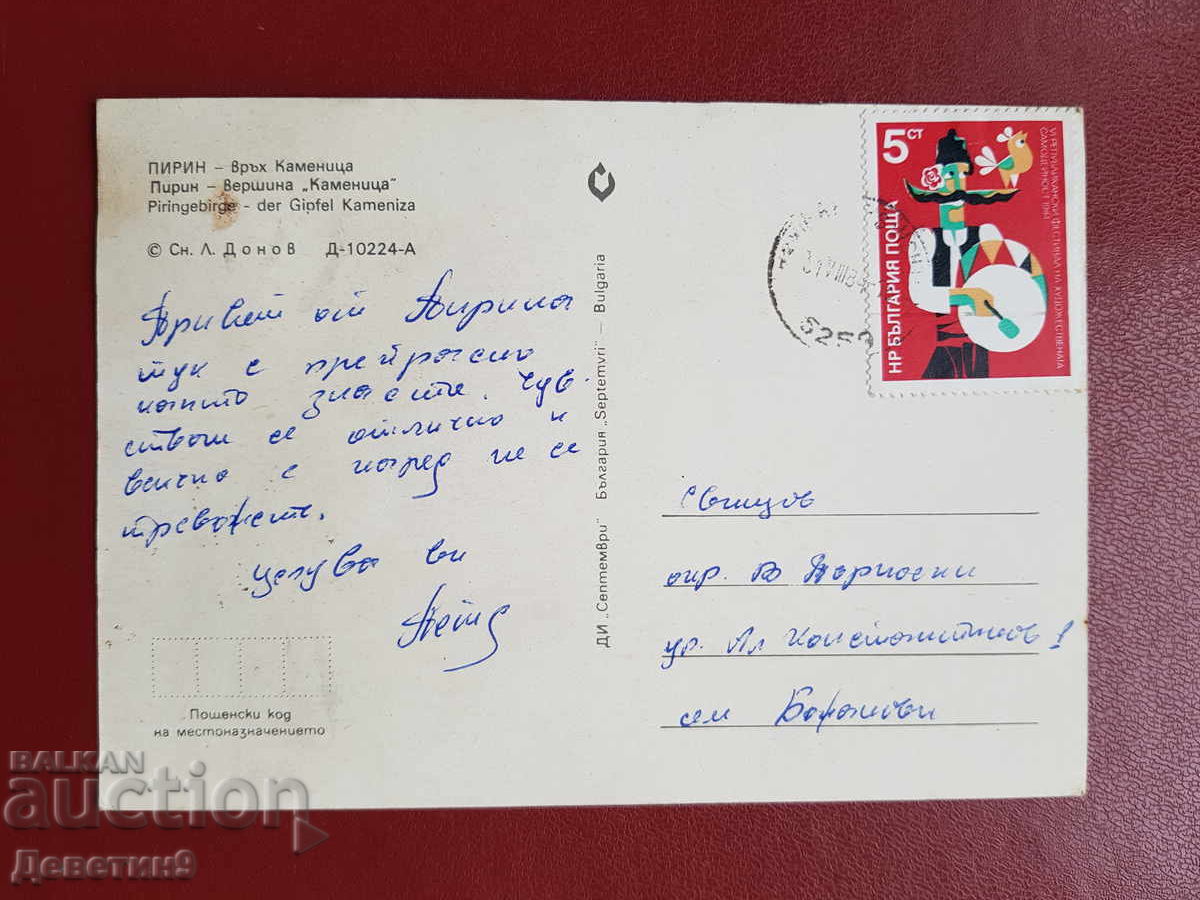 ПИРИН – връх Каменица
Пирин – Вершина „Каменица"
Piringebirge - der Gipfel Kameniza
© Сн. Л. Донов Д-10224-А
Привет от Пирина
тук е прекрасно
както знаете. Чув-
ствам се отлично и
всичко е наред не се
тревожете.
Целува ви
Петя
Пощенски код
на местоназначението
ДИ „Септември" България „Septemvri" – Bulgaria
5 СТ
НР БЪЛГАРИЯ ПОЩА
VI РЕПУБЛИКАНСКИ ФЕСТИВАЛ НА ХУДОЖЕСТВЕНАТА
САМОДЕЙНОСТ 1984
Свищов
окр. В Търновски
ул. Ал Константинов 1
сем Божанови
BALKAN
auction
Деветин9